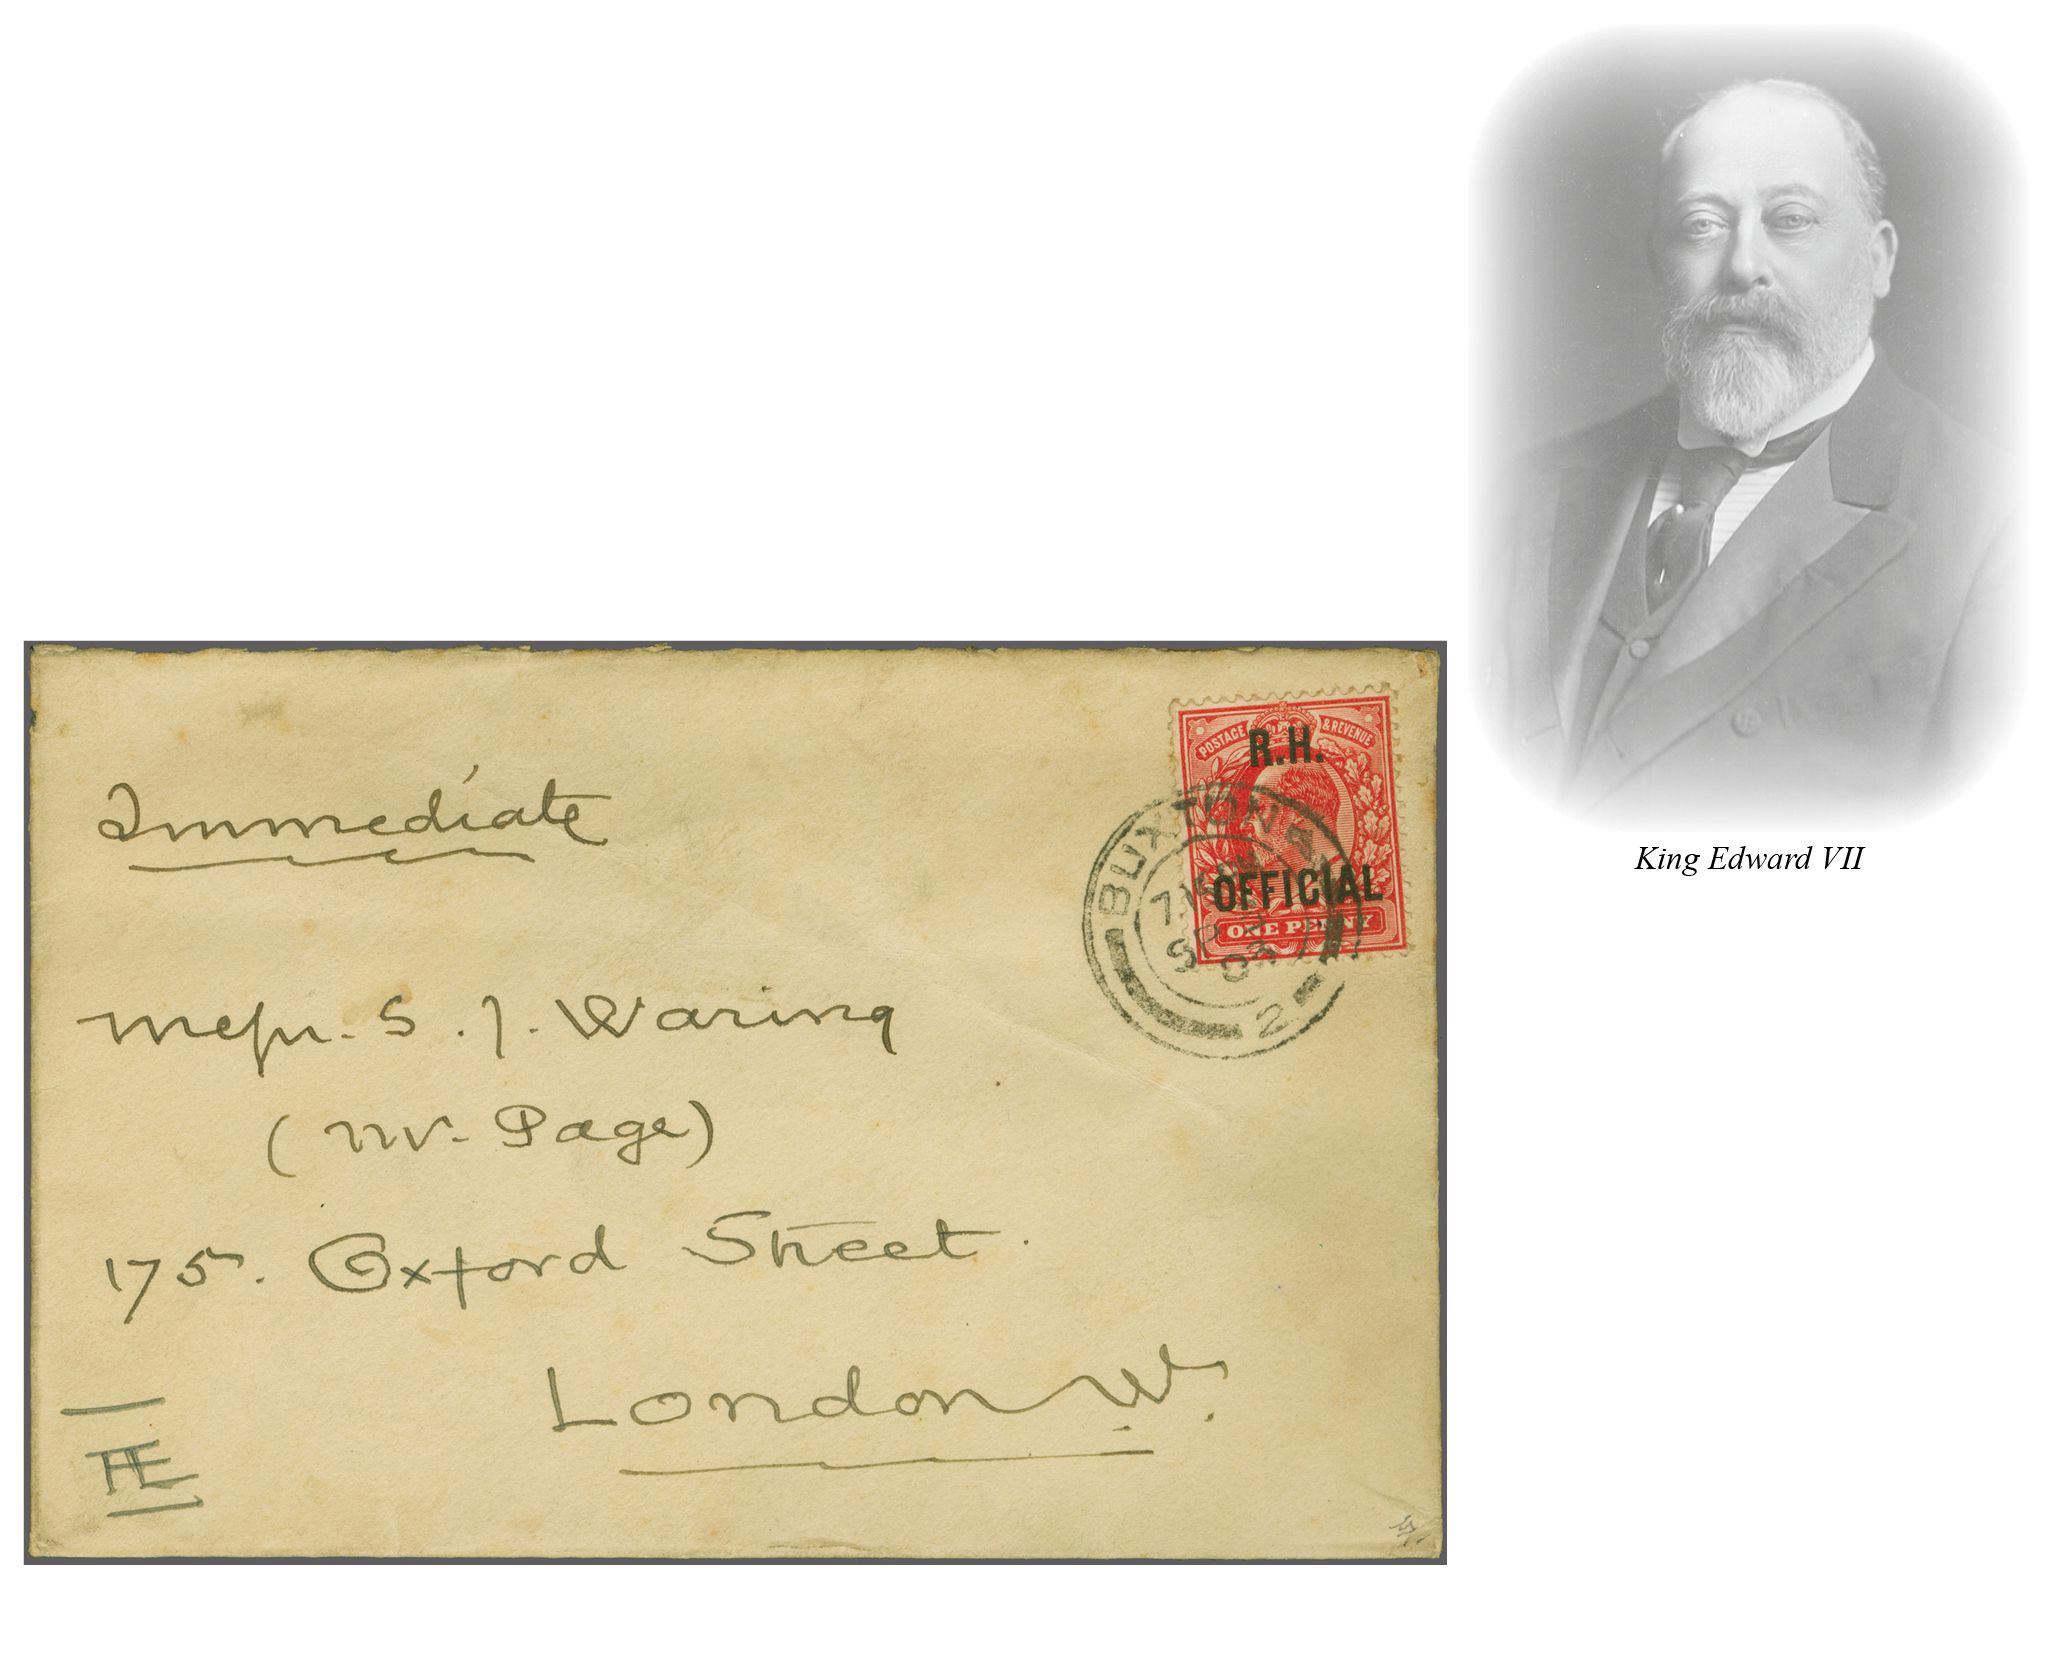 King Edward VII
POSTAGE & REVENUE
R.H.
OFFICIAL
ONE PENNY
BUXTON
2
Immediate
Messrs. S. J. Waring
(Mr. Page)
175. Oxford Street.
London W.